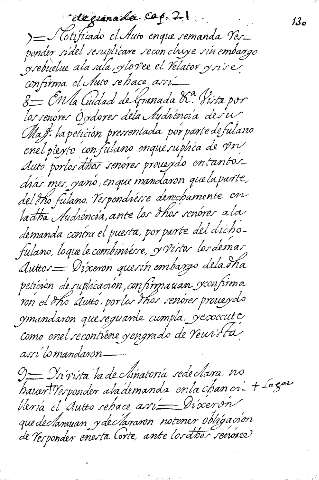 de granada cap. 21
130
7= Notificado el Auto en que se manda Res-
ponder si del se suplicare se concluye sin embargo
y se buelue a la sala, y lo vee el Relator y si se
confirma el Auto se hace assi
8= En la Ciudad de Granada &ª. Vista por
los señores Oydores de la Audiencia de su
Magd. la petición presentada por parte de fulano
en el pleyto con fulano en que suplica de vn
Auto por los dhos señores proueydo en tantos
dias mes, y año, en que mandaron que la parte
del dho fulano Respondiesse derechamente en
la dha Audiencia, ante los dhos señores a la
demanda contra el puesta, por parte del dicho
fulano, lo que le combiniesse, y Vistos los demas
Autos= Dixeron que sin embargo de la dha
petición de suplicación, confirmauan, y confirma
ron el dho Auto, por los dhos señores proueydo
y mandaron que se guarde cumpla, y execute
como en el se contiene y en grado de Reuista
assi lo mandaron
9= Y si vista la declinatoria se declara no
hauer + Responder a la demanda en la chanci + Lugar
lleria el Autto se hace assi= Dixeron
que declarauan, y declararon no tener obligación
de Responder en esta Corte, ante los dhos señores